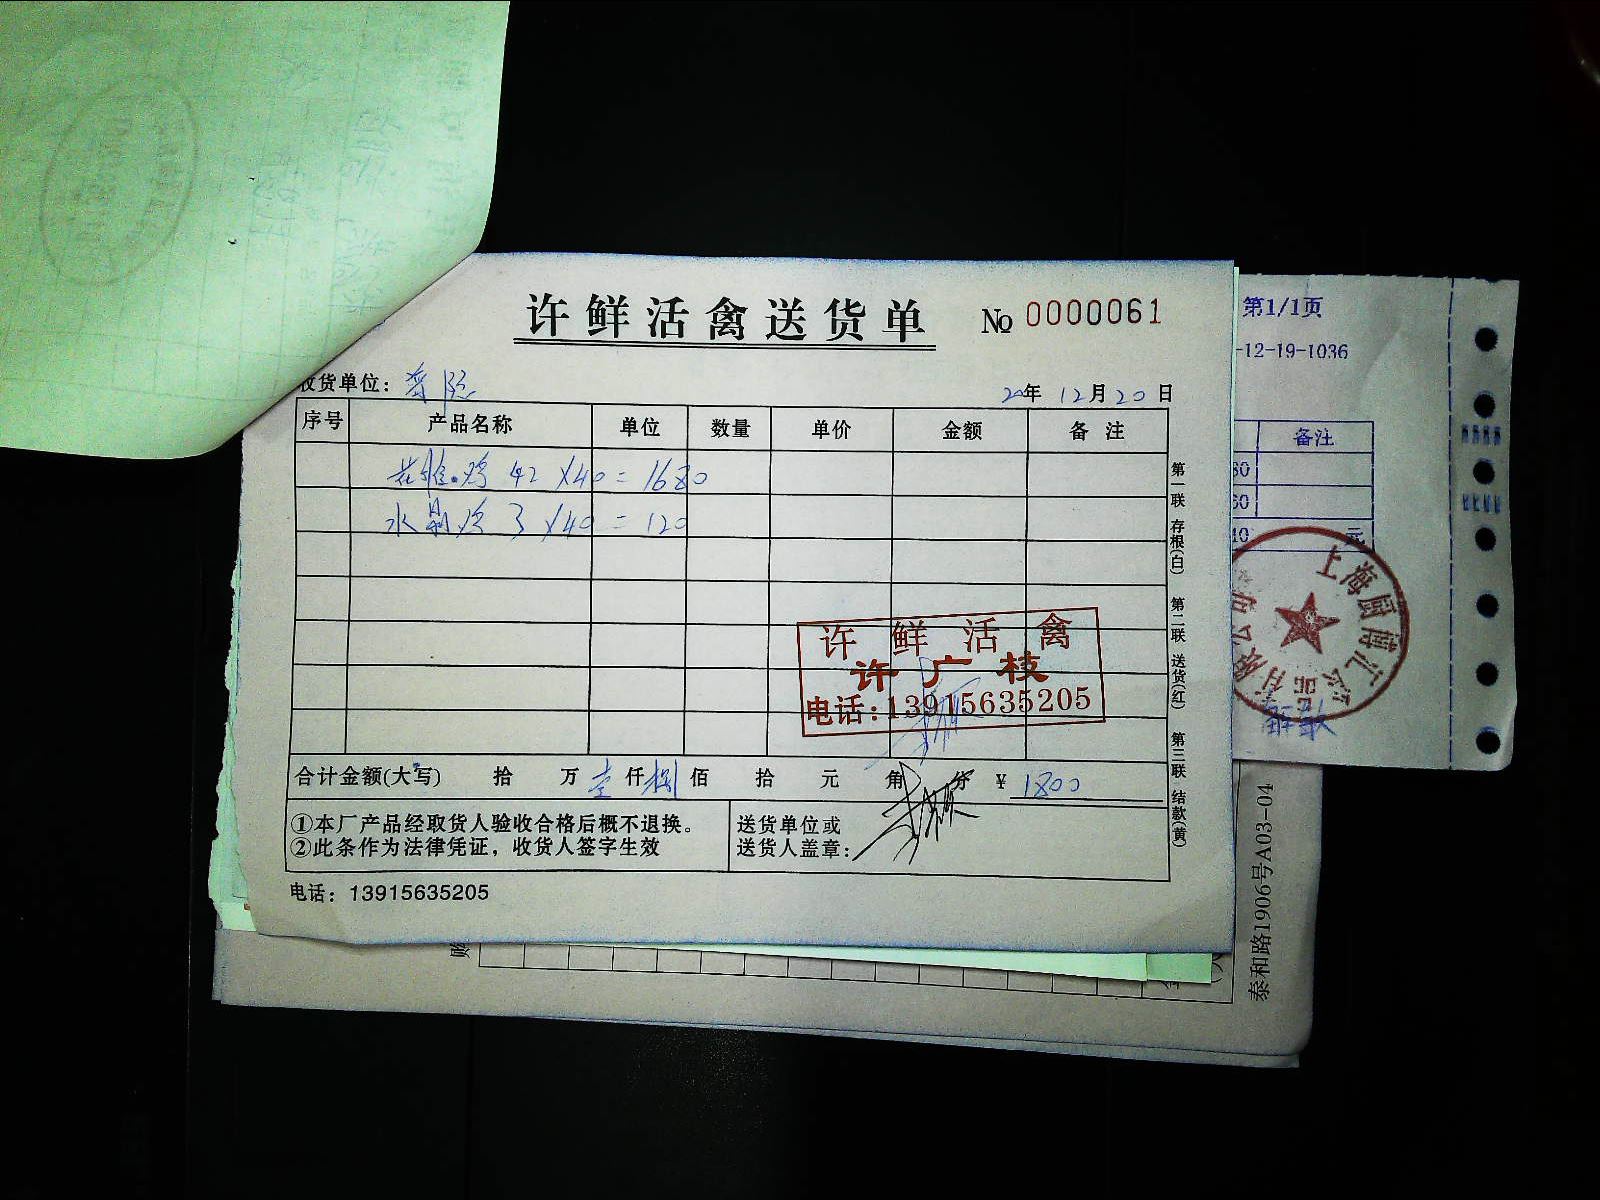 许鲜活禽送货单 № 0000061
收货单位：
20年 12月20日
序号 产品名称 单位 数量 单价 金额 备注
鸡 42 ×40 = 1680
水晶鸡 3 ×40 = 120
许鲜活禽
许广枝
电话：13915635205
合计金额(大写) 拾 万 壹仟捌佰 拾 元 角 分 ¥ 1800
①本厂产品经取货人验收合格后概不退换。
②此条作为法律凭证，收货人签字生效
送货单位或
送货人盖章：
电话：13915635205
第一联 存根(白) 第二联 送货(红) 第三联 结款(黄)
第1/1页
-12-19-1036
备注
元
上海
泰和路1906号A03-04